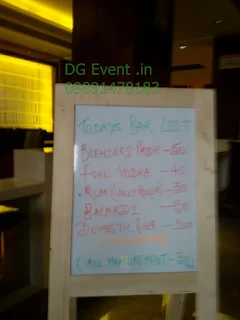 DG Event .in
09891478183
TODAY'S BAR LIST
BLENDER'S PRIDE - 50
FUEL VODKA - 40
RUM (JOLLY ROGER) - 30
BACARDI - 50
DOMESTIC BEER - 100
(ALL MEASUREMENT - 30ML